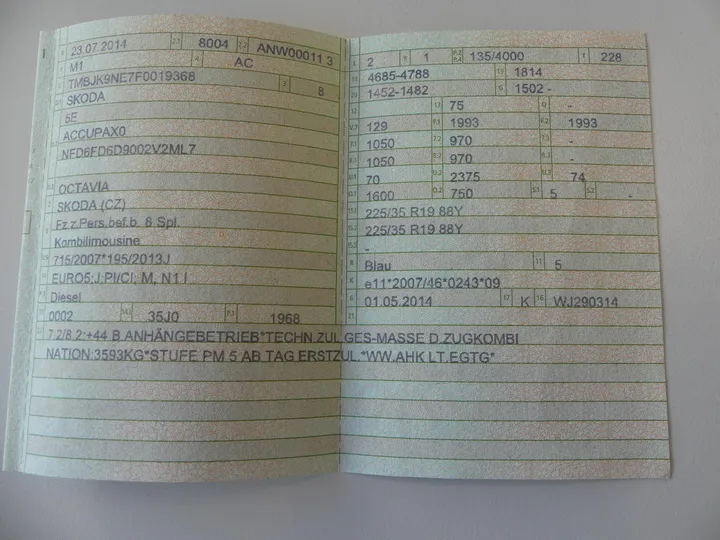 23.07.2014 2.1 8004 2.2 ANW00011 3
M1 4 AC
TMBJK9NE7F0019368 3 8
SKODA
5E
ACCUPAX0
NFD6FD6D9002V2ML7
OCTAVIA
SKODA (CZ)
Fz.z.Pers.bef.b. 8 Spl.
Kombilimousine
715/2007*195/2013J
EURO5;J:PI/CI; M, N1 I
Diesel
0002 14.1 35J0 P.1 1968
L 2 9 1 P.2 P.4 135/4000 T 228
18 4685-4788 19 1814
20 1452-1482 G 1502 -
12 - 13 75 Q -
V.7 129 F.1 1993 F.2 1993
7.1 1050 7.2 970 7.3 -
8.1 1050 8.2 970 8.3 -
U.1 70 U.2 2375 U.3 74
O.1 1600 O.2 750 S.1 5 S.2 -
15.1 225/35 R19 88Y
15.2 225/35 R19 88Y
15.3 -
R Blau 11 5
K e11*2007/46*0243*09
6 01.05.2014 17 K 16 WJ290314
21
7.2/8.2:+44 B.ANHÄNGEBETRIEB*TECHN.ZUL.GES-MASSE D.ZUGKOMBI
NATION:3593KG*STUFE PM 5 AB TAG ERSTZUL.*WW.AHK LT.EGTG*